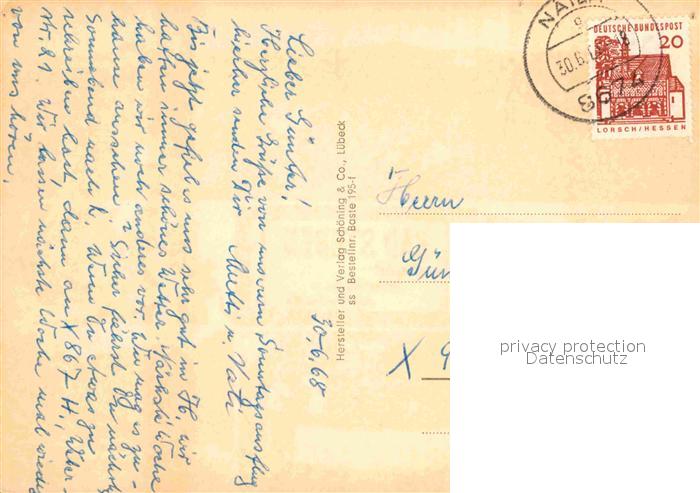 30.6.68
Lieber Günter!
Herzliche Grüße von unserem Sonntagsausflug
hierher senden Dir Mutti u. Vati
Bis jetzt gefiel es uns sehr gut in Hb, wir
hatten immer schönes Wetter. Nächste Woche
haben wir noch anderes vor. Wie mag es zu-
hause aussehen? Sicher fährst Du nächsten
Sonnabend nach Wenn Du etwas zu
schreiben hast, dann an X 867 H, Über-
str. 21. Wir lassen nächste Woche mal wieder
von uns hören.
Hersteller und Verlag Schöning & Co., Lübeck
ss Bestellnr. Baste 195-f
NAILA
30.6.
8674
DEUTSCHE BUNDESPOST
20
LORSCH/HESSEN
Herrn
Gün
X 9
privacy protection
Datenschutz